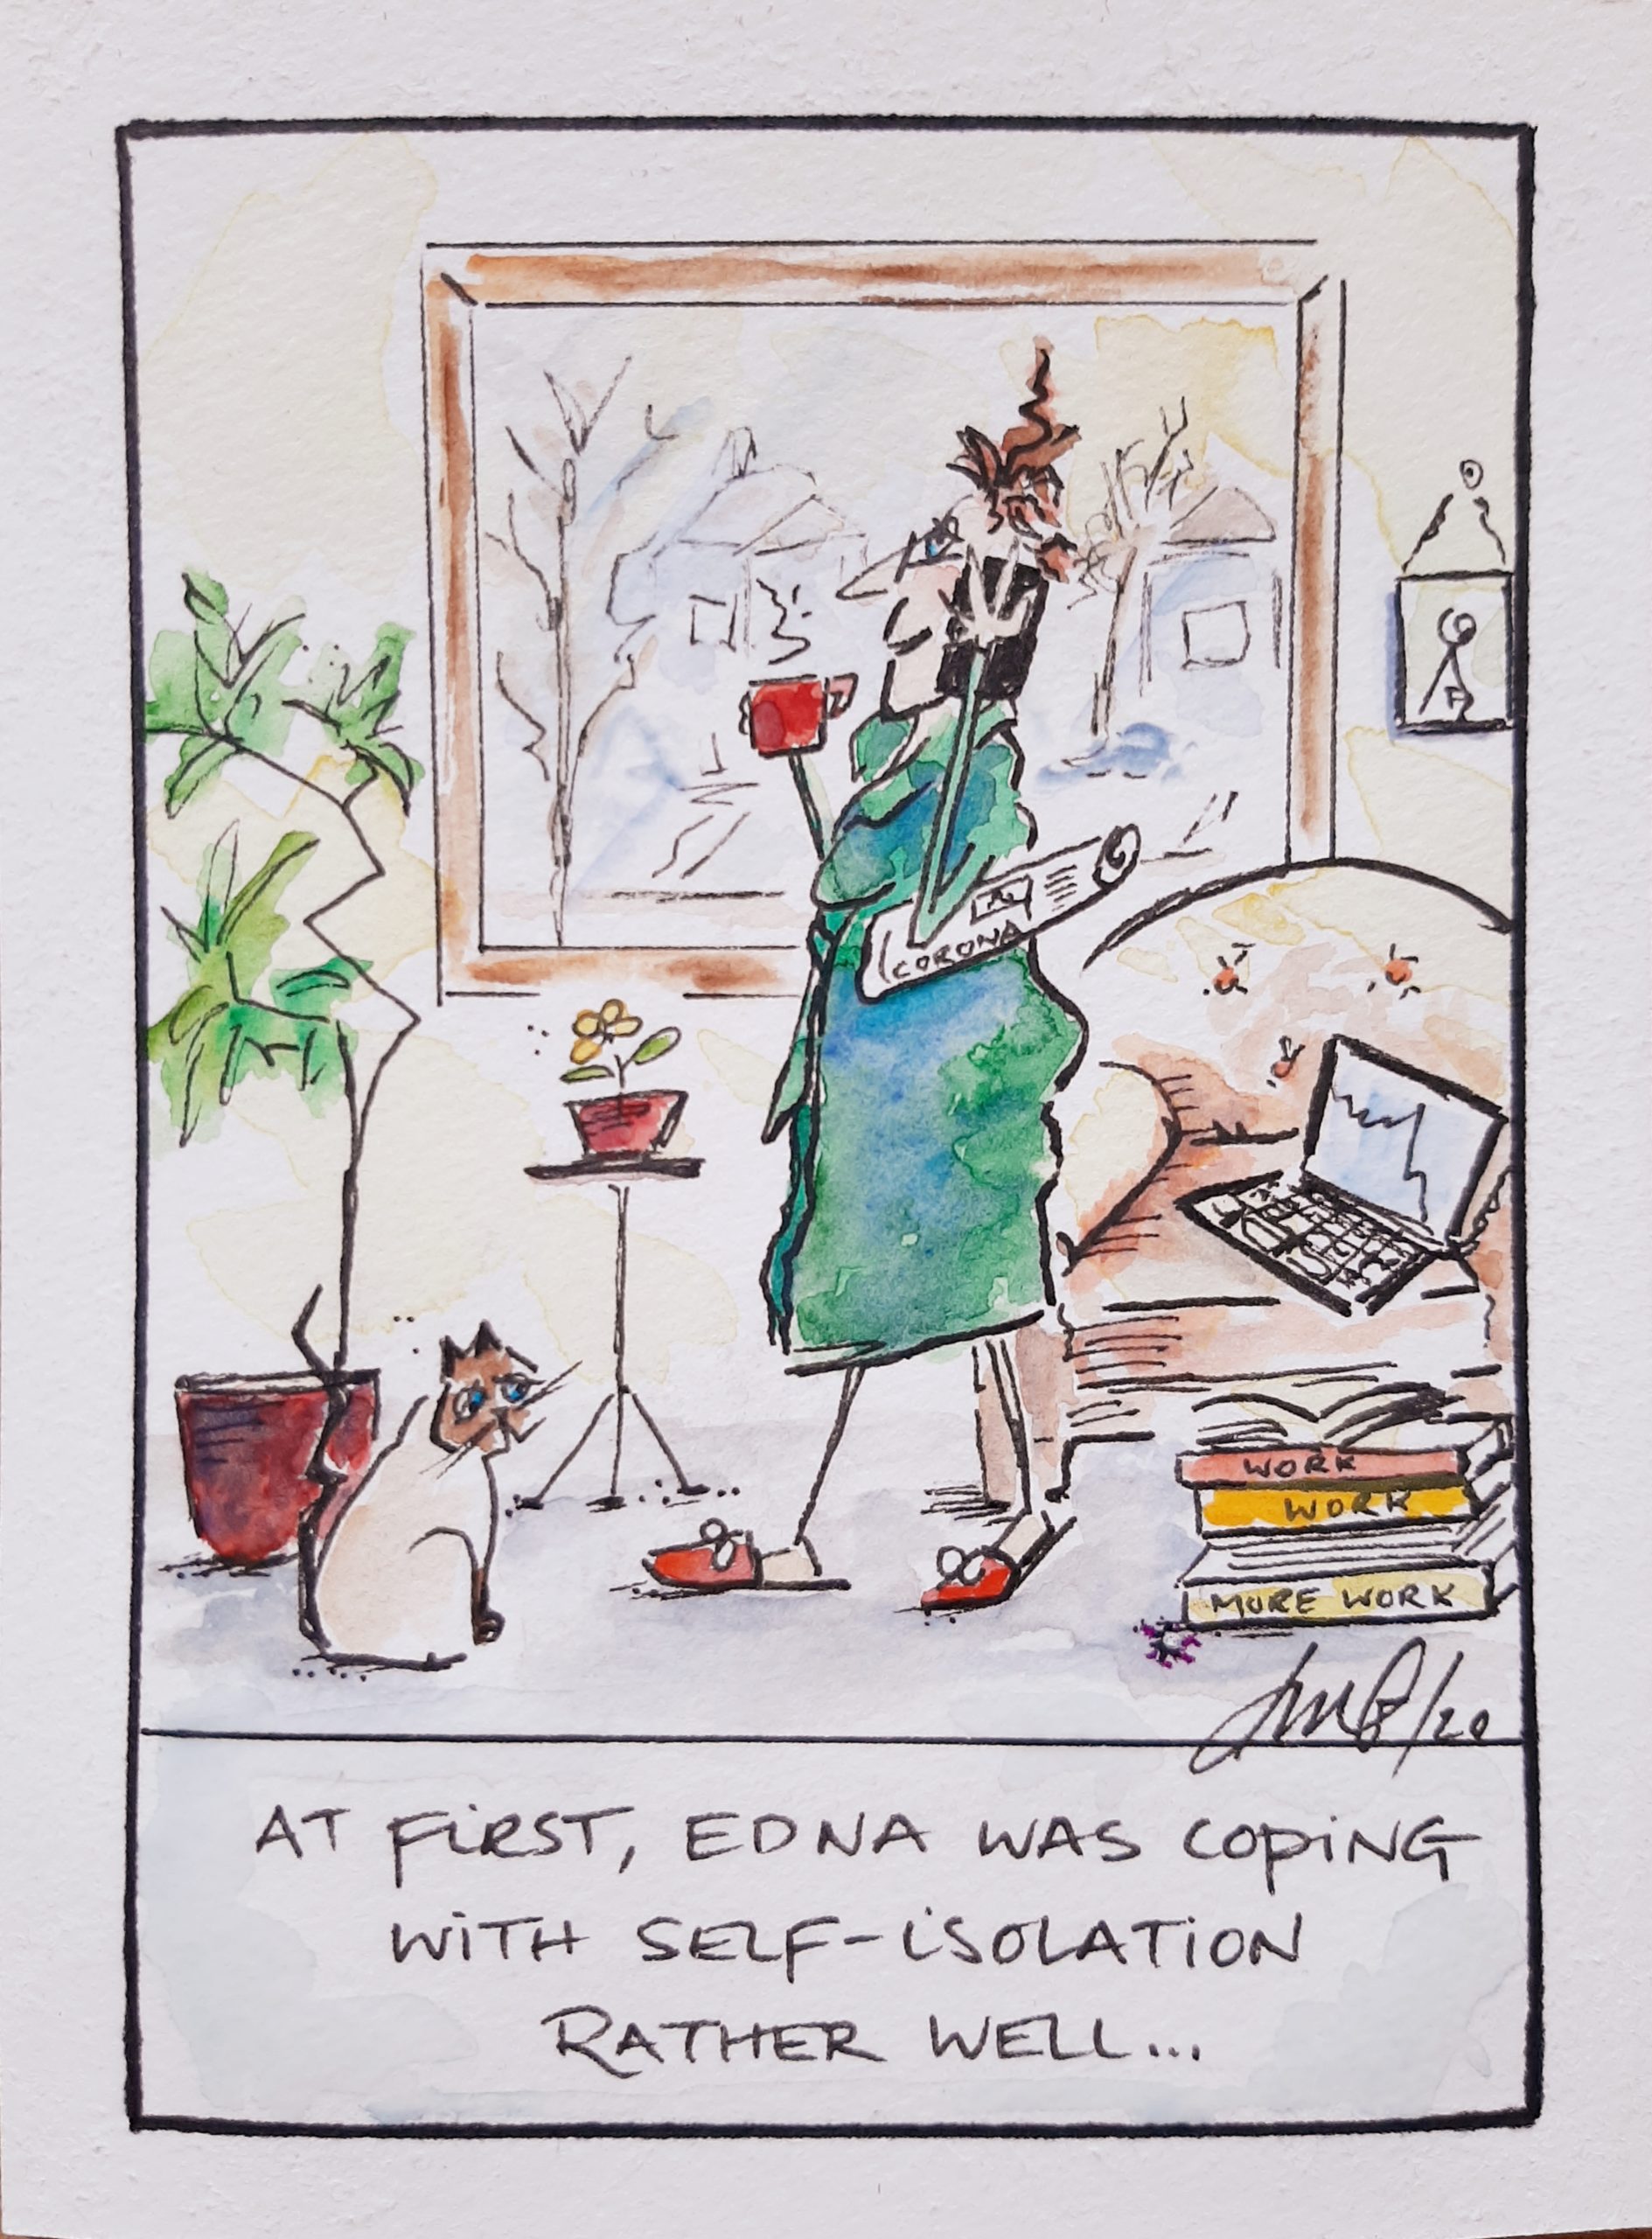 CORONA
WORK
WORK
MORE WORK
/20
AT FIRST, EDNA WAS COPING
WITH SELF-ISOLATION
RATHER WELL...